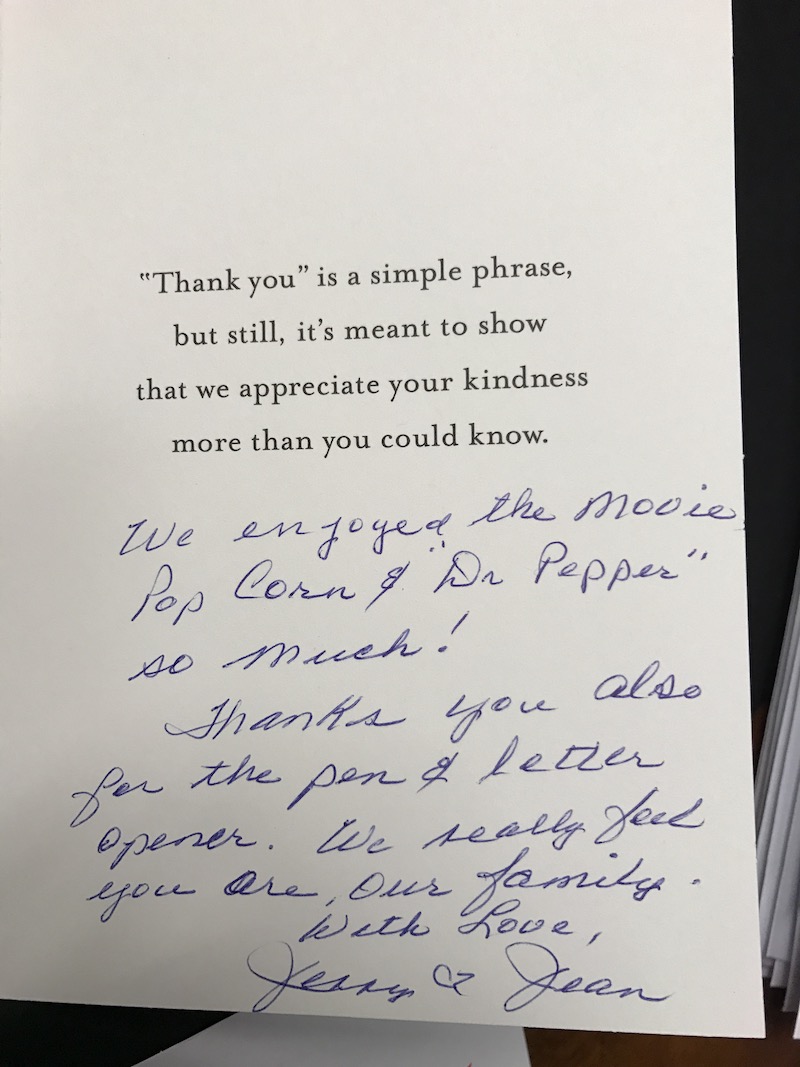 "Thank you" is a simple phrase,
but still, it's meant to show
that we appreciate your kindness
more than you could know.
We enjoyed the Movie,
Pop Corn & "Dr Pepper"
so much!
Thanks you also
for the pen & letter
opener. We really feel
you are, our family.
With Love,
Jerry & Jean